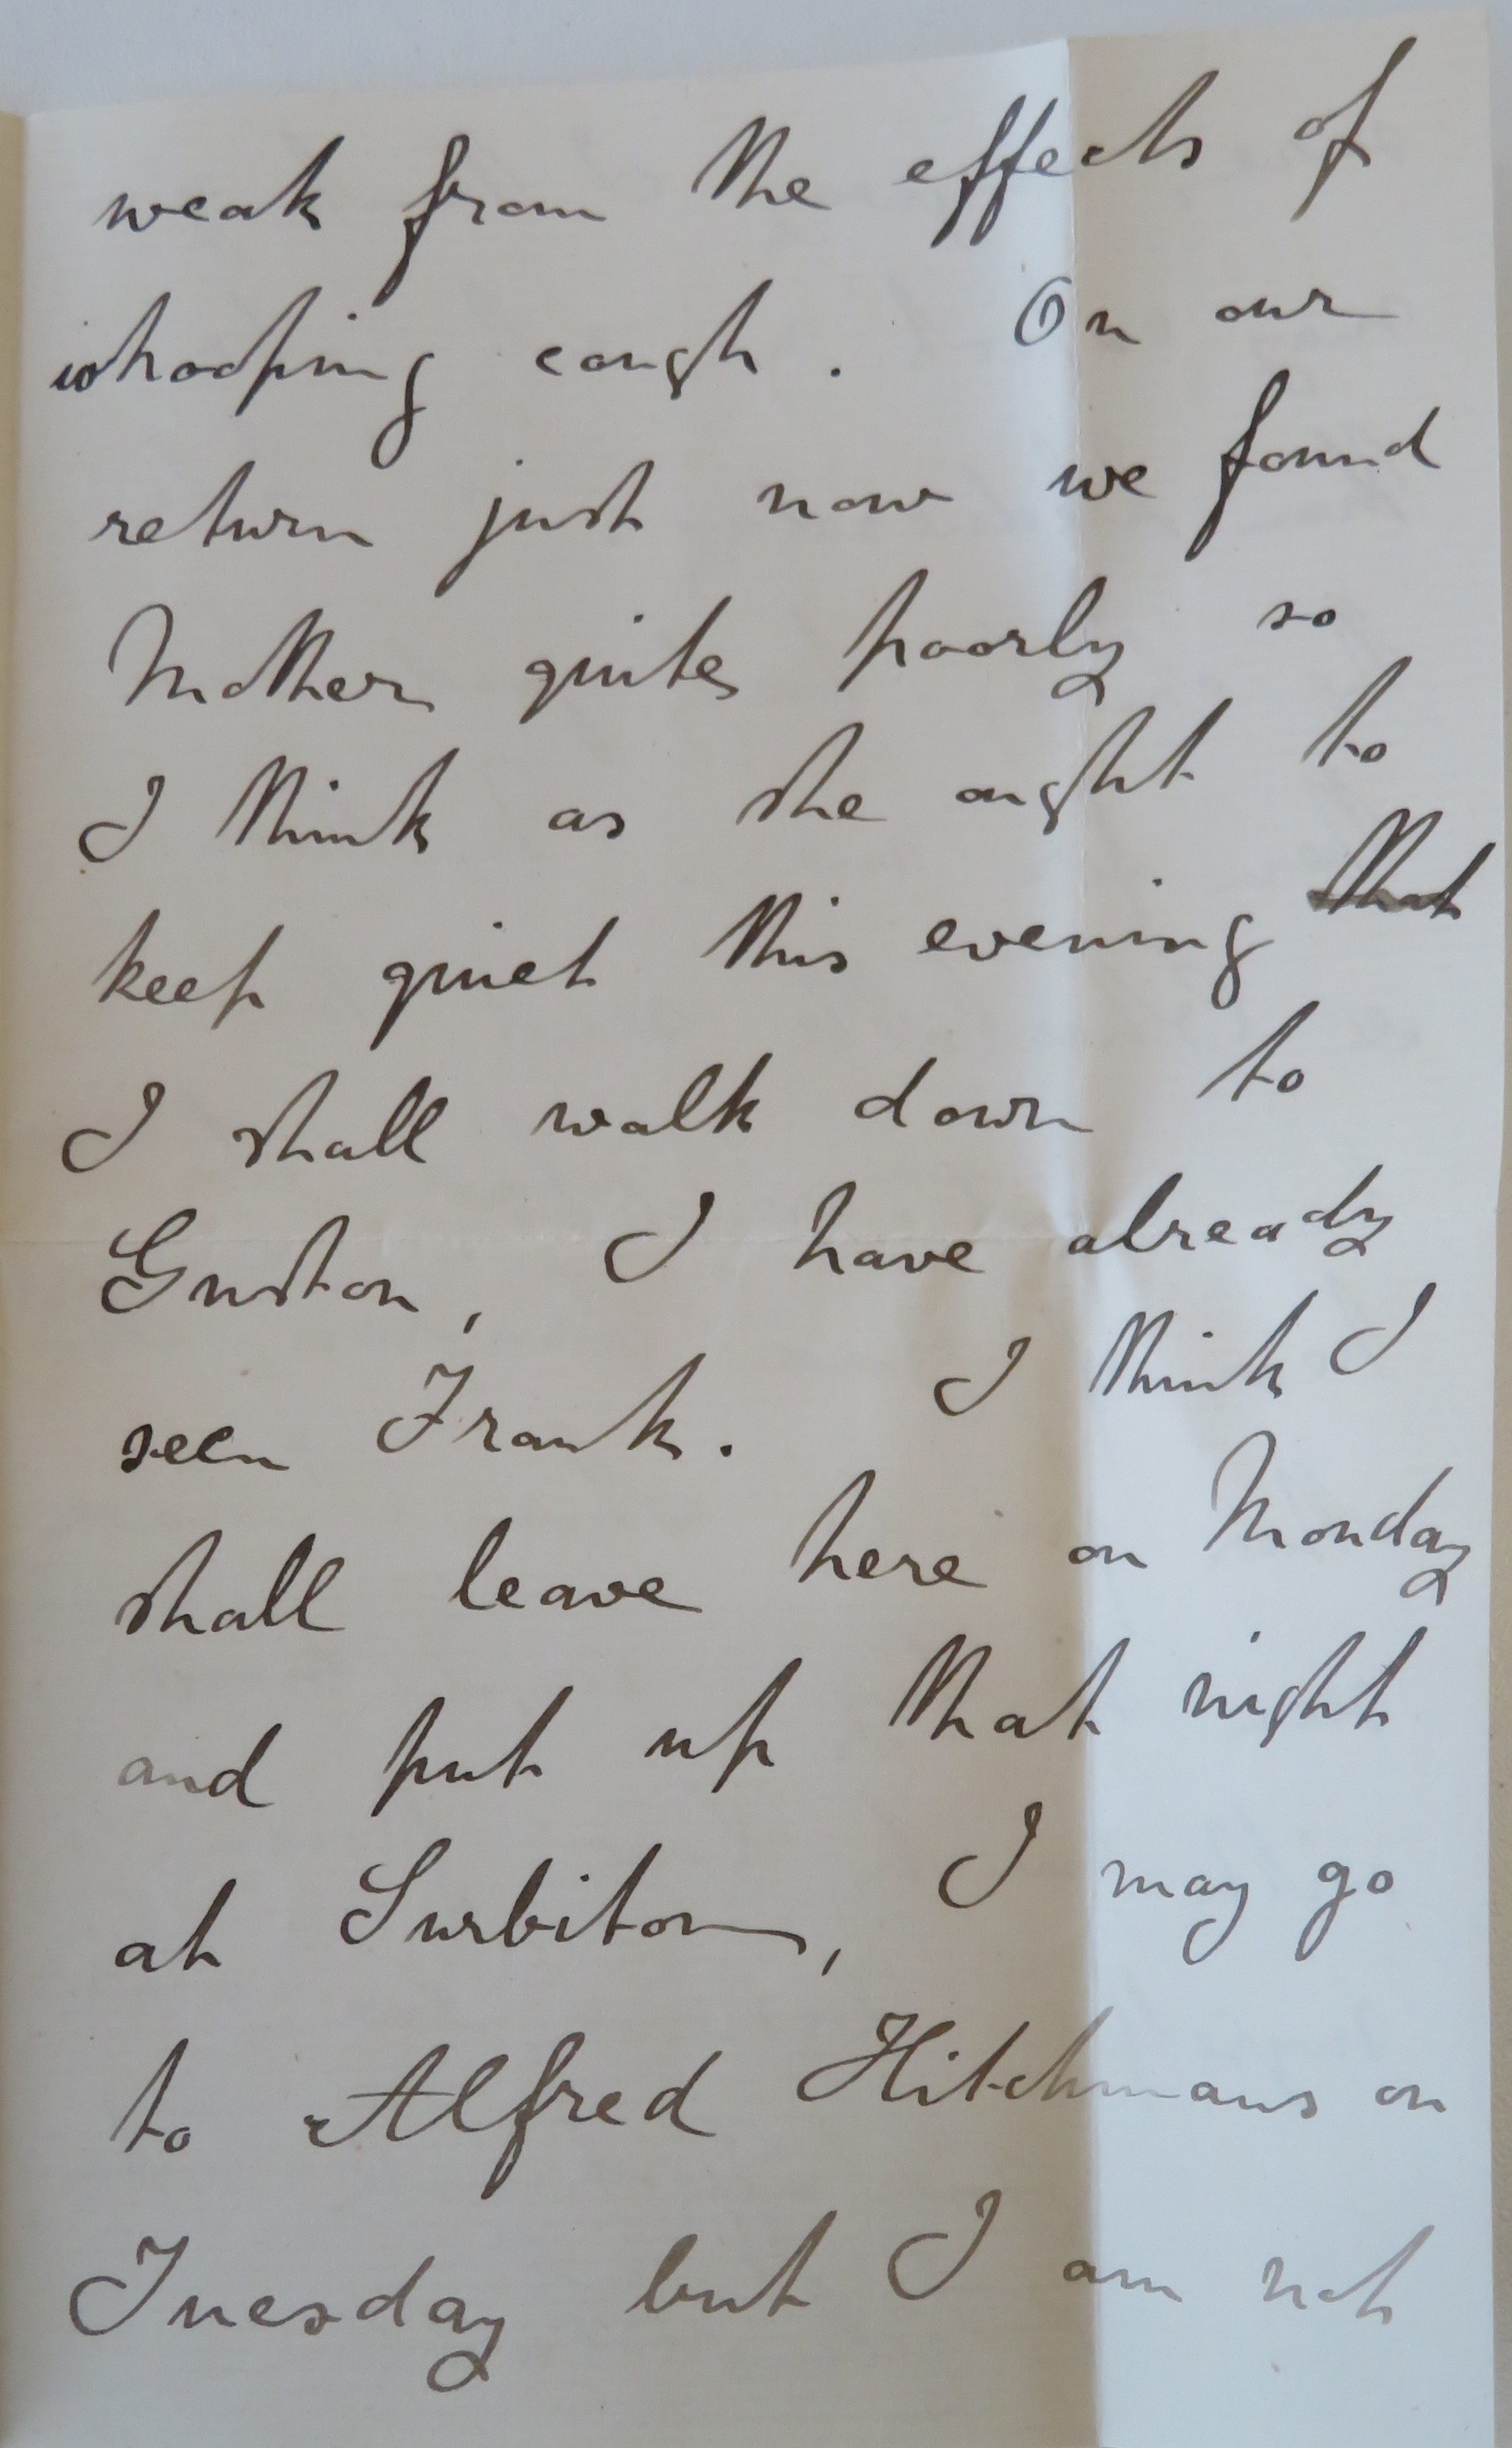 weak from the effects of
whooping cough. On our
return just now we found
Mother quite poorly so
I think as she ought to
keep quiet this evening that
I shall walk down to
Guston, I have already
seen Frank. I think I
shall leave here on Monday
and put up that night
at Surbiton, I may go
to Alfred Hitchmans on
Tuesday but I am not